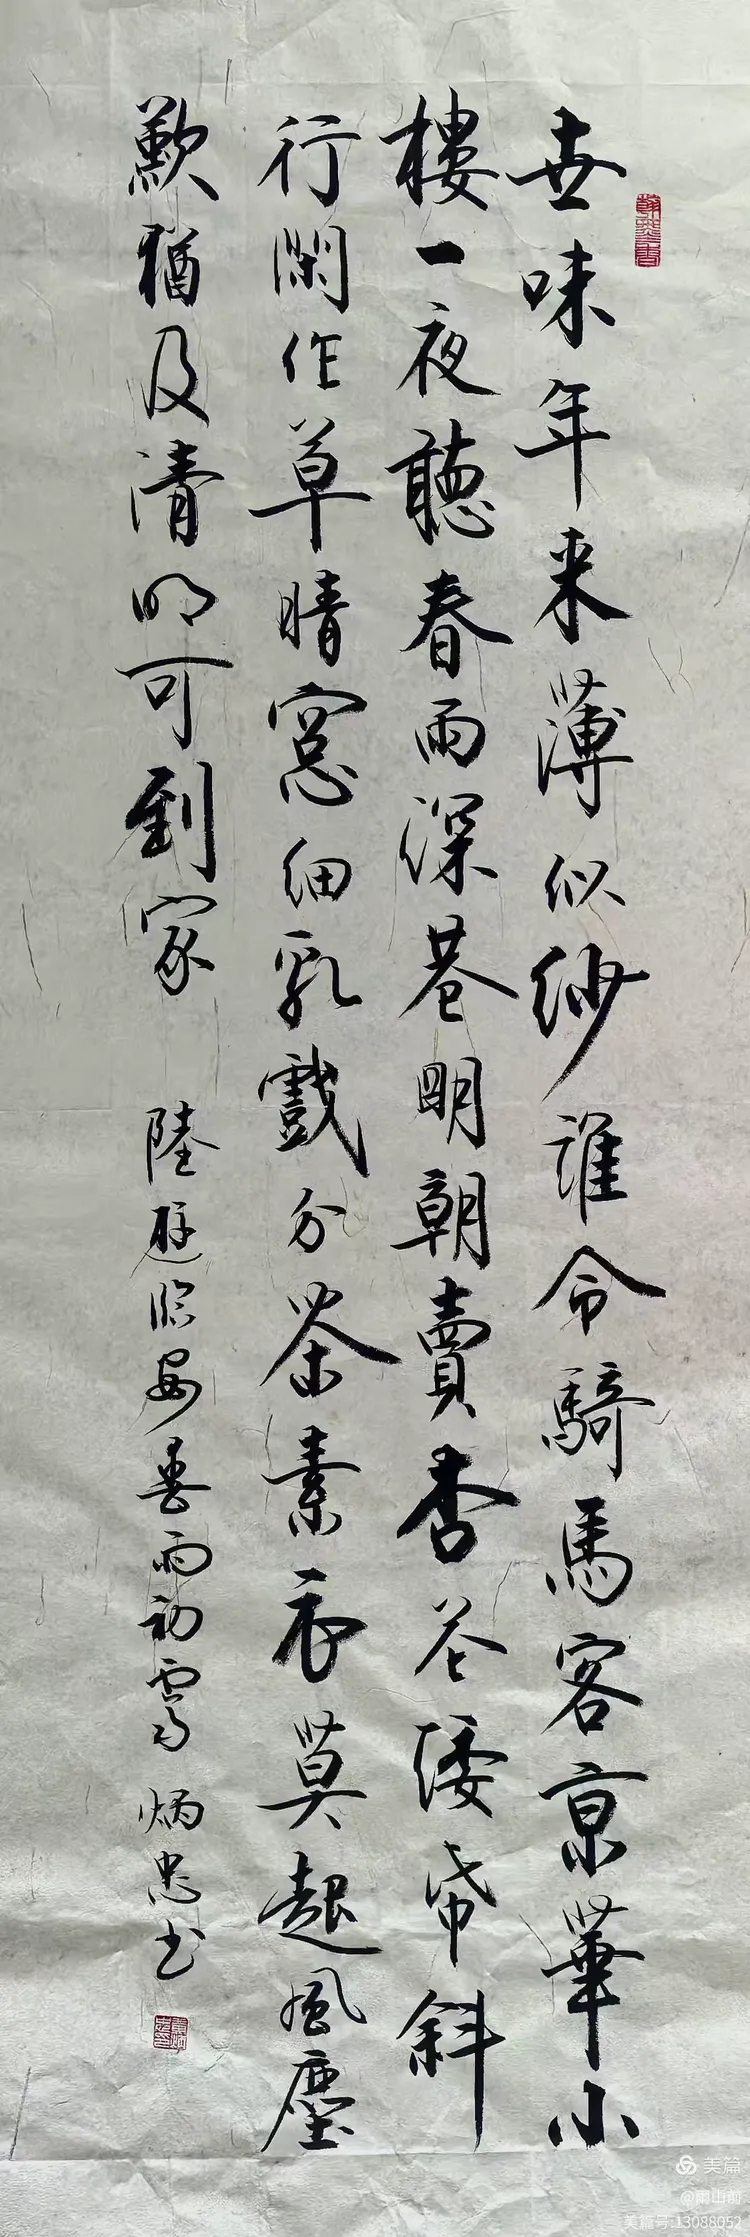 世味年来薄似紗誰令騎馬客京華小
樓一夜聽春雨深巷明朝賣杏花矮帋斜
行閑作草晴窻細乳戲分茶素衣莫起風塵
歎猶及清明可到家 陸游臨安春雨初霽 炳忠书
美篇
@雨山前
美篇号:13088052